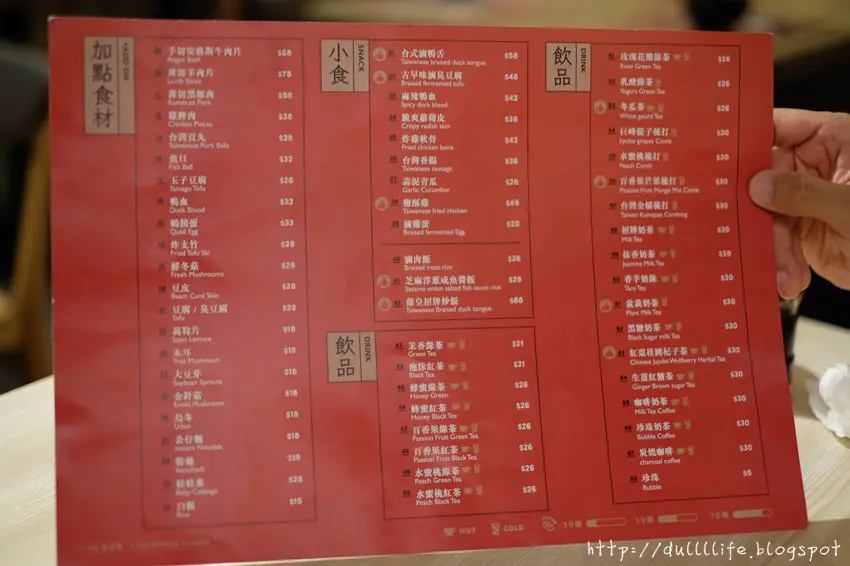 加點食材
ADD ON
手切安格斯牛肉片 $68
Angus Beef
薄切羊肉片 $78
Lamb Slices
薄切黑豚肉 $58
Kurobuta Pork
雞脾肉 $38
Chicken Pieces
台灣貢丸 $28
Taiwanese Pork Balls
魚旦 $32
Fish Ball
玉子豆腐 $28
Tamago Tofu
鴨血 $32
Duck Blood
鵪鶉蛋 $32
Quail Egg
炸支竹 $28
Fried Tofu Ski
鮮冬菇 $28
Fresh Mushrooms
豆皮 $28
Bean Curd Skin
豆腐 / 臭豆腐 $28
Tofu
萵筍片 $18
Stem Lettuce
木耳 $18
Tree Mushroom
大豆芽 $18
Soybean Sprouts
金針菇 $18
Enoki Mushroom
烏冬 $18
Udon
公仔麵 $18
Instant Noodels
粉絲 $18
Vermicelli
娃娃菜 $28
Baby Cabbage
白飯 $15
Rice
小食
SNACK
31 台式滷鴨舌 $58
Taiwanese braised duck tongue
32 古早味滷臭豆腐 $48
Braised fermented tufu
33 麻辣鴨血 $42
Spicy duck blood
34 脆爽蘿蔔皮 $38
Crispy radish skin
35 炸雞軟件 $42
Fried chicken bone
36 台灣香腸 $36
Taiwanese sausage
37 蒜泥青瓜 $28
Garlic Cucumber
38 鹽酥雞 $45
Taiwanese fried chicken
39 滷雞蛋 $20
Braised fermented Egg
40 滷肉飯 $28
Braised meat rice
41 芝麻洋蔥咸魚醬飯 $28
Sesame onion salted fish sauce rice
42 鼎皇招牌炒飯 $88
Taiwanese Braised duck tongue
飲品
DRINK
43 茉香綠茶 $21
Green Tea
44 泡沫紅茶 $21
Black Tea
45 蜂蜜綠茶 $26
Honey Green
46 蜂蜜紅茶 $26
Honey Black Tea
47 百香果綠茶 $26
Passion Fruit Green Tea
48 百香果紅茶 $26
Passion Fruit Black Tea
49 水蜜桃綠茶 $26
Peach Green Tea
50 水蜜桃紅茶 $26
Peach Black Tea
飲品
DRINK
51 玫瑰花瓣綠茶 $26
Rose Green Tea
52 乳酸綠茶 $26
Yogurt Green Tea
53 冬瓜茶 $26
White gourd Tea
54 巨蜂提子梳打 $30
kyoho grapes Comb
55 水蜜桃梳打 $30
Peach Comb
56 百香果芒果梳打 $30
Passion Fruit Mango Mix Comb
57 台灣金桔梳打 $30
Taiwan Kumquat Combing
58 招牌奶茶 $30
Milk Tea
59 抹香奶茶 $30
Jasmine Milk Tea
60 香芋奶綠 $30
Taro Tea
61 盆栽奶茶 $30
Plant Milk Tea
62 黑糖奶茶 $30
Black Sugar milk Tea
63 紅棗桂圓杞子茶 $30
Chinese Jujube Wolfberry Herbal Tea
64 生薑紅糖茶 $30
Ginger Brown sugar Tea
65 咖啡奶茶 $30
Milk Tea Coffee
66 珍珠奶茶 $30
Bubble Coffee
67 炭燒咖啡 $30
charcoal coffee
68 珍珠 $5
Bubble
HOT COLD 3分糖 5分糖 7分糖
http://dullllife.blogspot